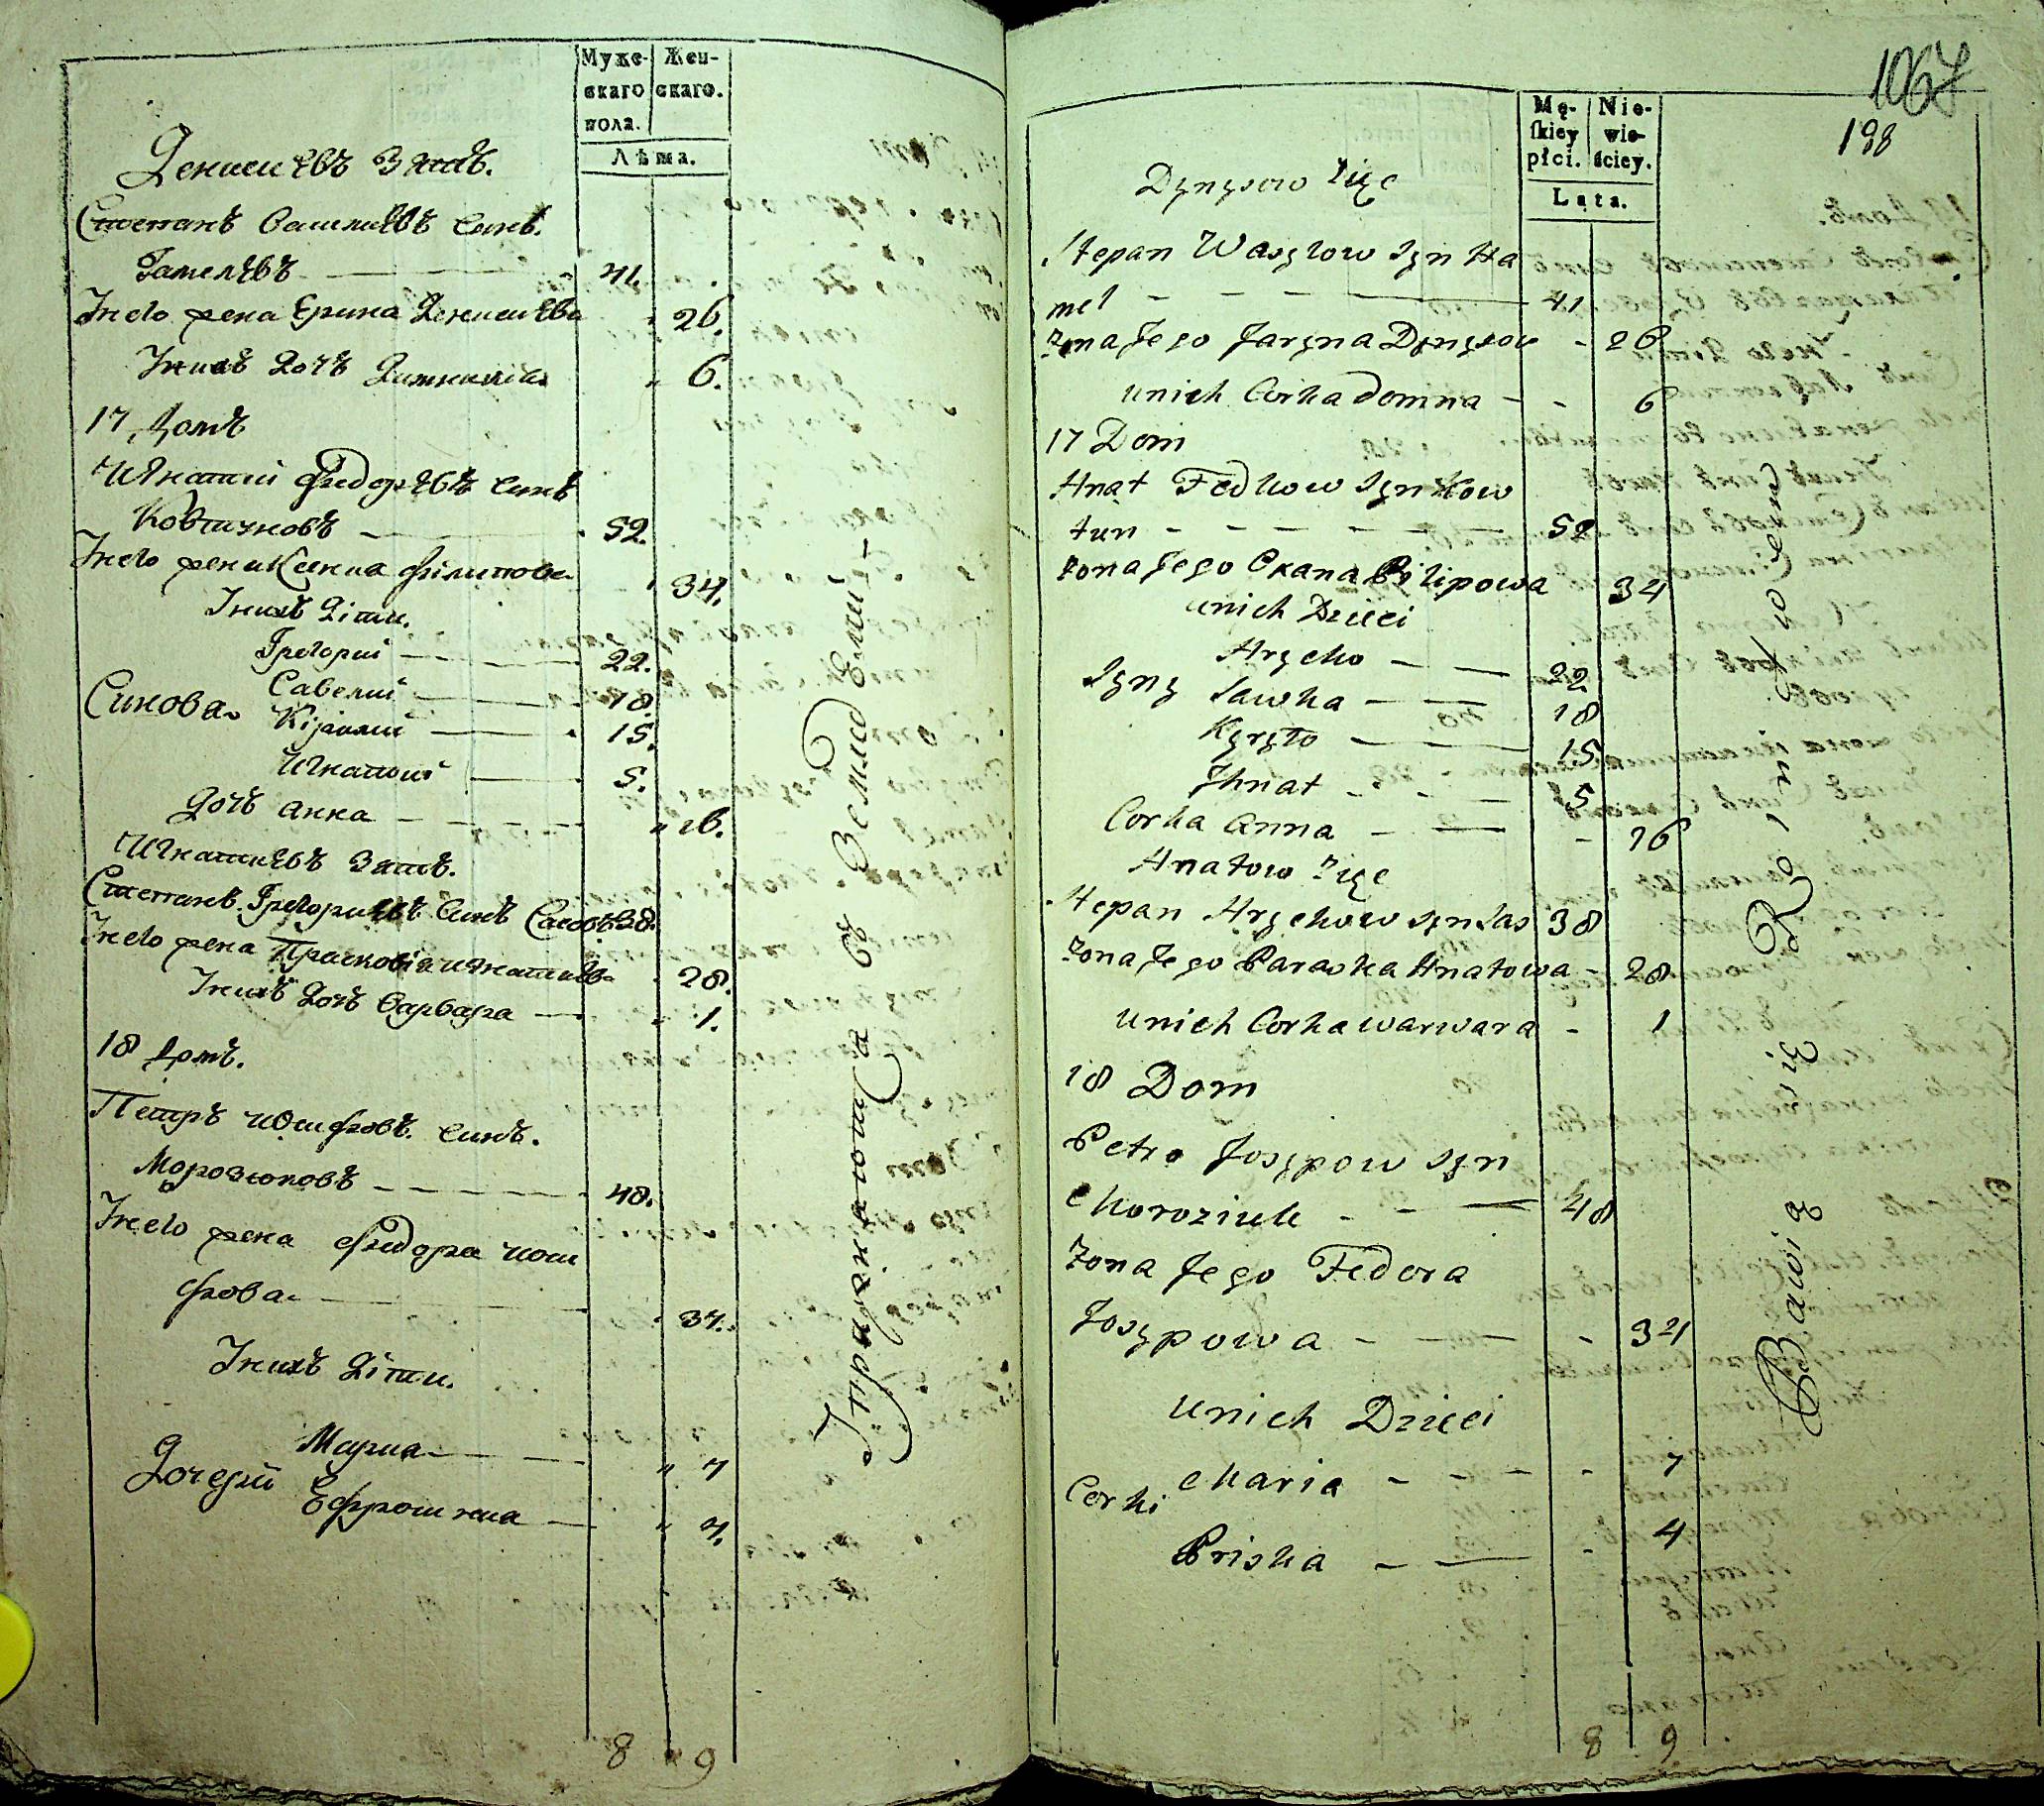 Муже-
скаго
пола.
Жен-
скаго.
Лѣта.
Денисиевъ Зять.
Степанъ Василиевъ Синъ.
Гамелевъ 41.
Унего жена Ерина Денисиева 26.
Унихъ Дочъ 6.
17 Домъ
Игнатий Федоровъ Синъ
Ковтуновъ 52.
Унего жена Ксения Филипова 34.
Унихъ Діти.
Григорий 22.
Синова Савелий 18.
Кирилий 15.
Игнатий 5.
Дочъ Анна 16.
Игнатиевъ Зять.
Степанъ Григориевъ Синъ Сасовъ 38.
Унего жена Прасковія Игнатиева 28.
Унихъ Дочъ Варвара 1.
18 Домъ.
Петръ Иосифовъ Синъ.
Морозюковъ 48.
Унего жена Федора Иоси
фова 34.
Унихъ Діти.
Дочери Мария 7
Ефросиния 4.
Упражняются въ Земледелий
8 9
1067
198
Mę-
skiey
płci.
Nie-
wie-
ściey.
Lata.
Dynysow Zięc
Stepan Wasylow Syn Ha
mel 41
Zona Jego Jaryna Dynysow 26
unich Corka Domna 6
17 Dom
Hnat Fedkow Syn Kow
tun 52
Zona Jego Oxana Pilipowa 34
unich Dzieci
Hrycko 22
Syny Sawka 18
Kyryło 15
Ihnat 5
Corka Anna 16
Hnatow Zięc
Stepan Hryckow Syn Sas 38
Zona Jego Paraska Hnatowa 28
unich Corka Warwara 1
18 Dom
Petro Josypow Syn
Moroziuk 48
Zona Jego Fedora
Josypowa 34
unich Dzieci
Corki Maria 7
Priska 4
Bawią się Rolnictwem
8 9